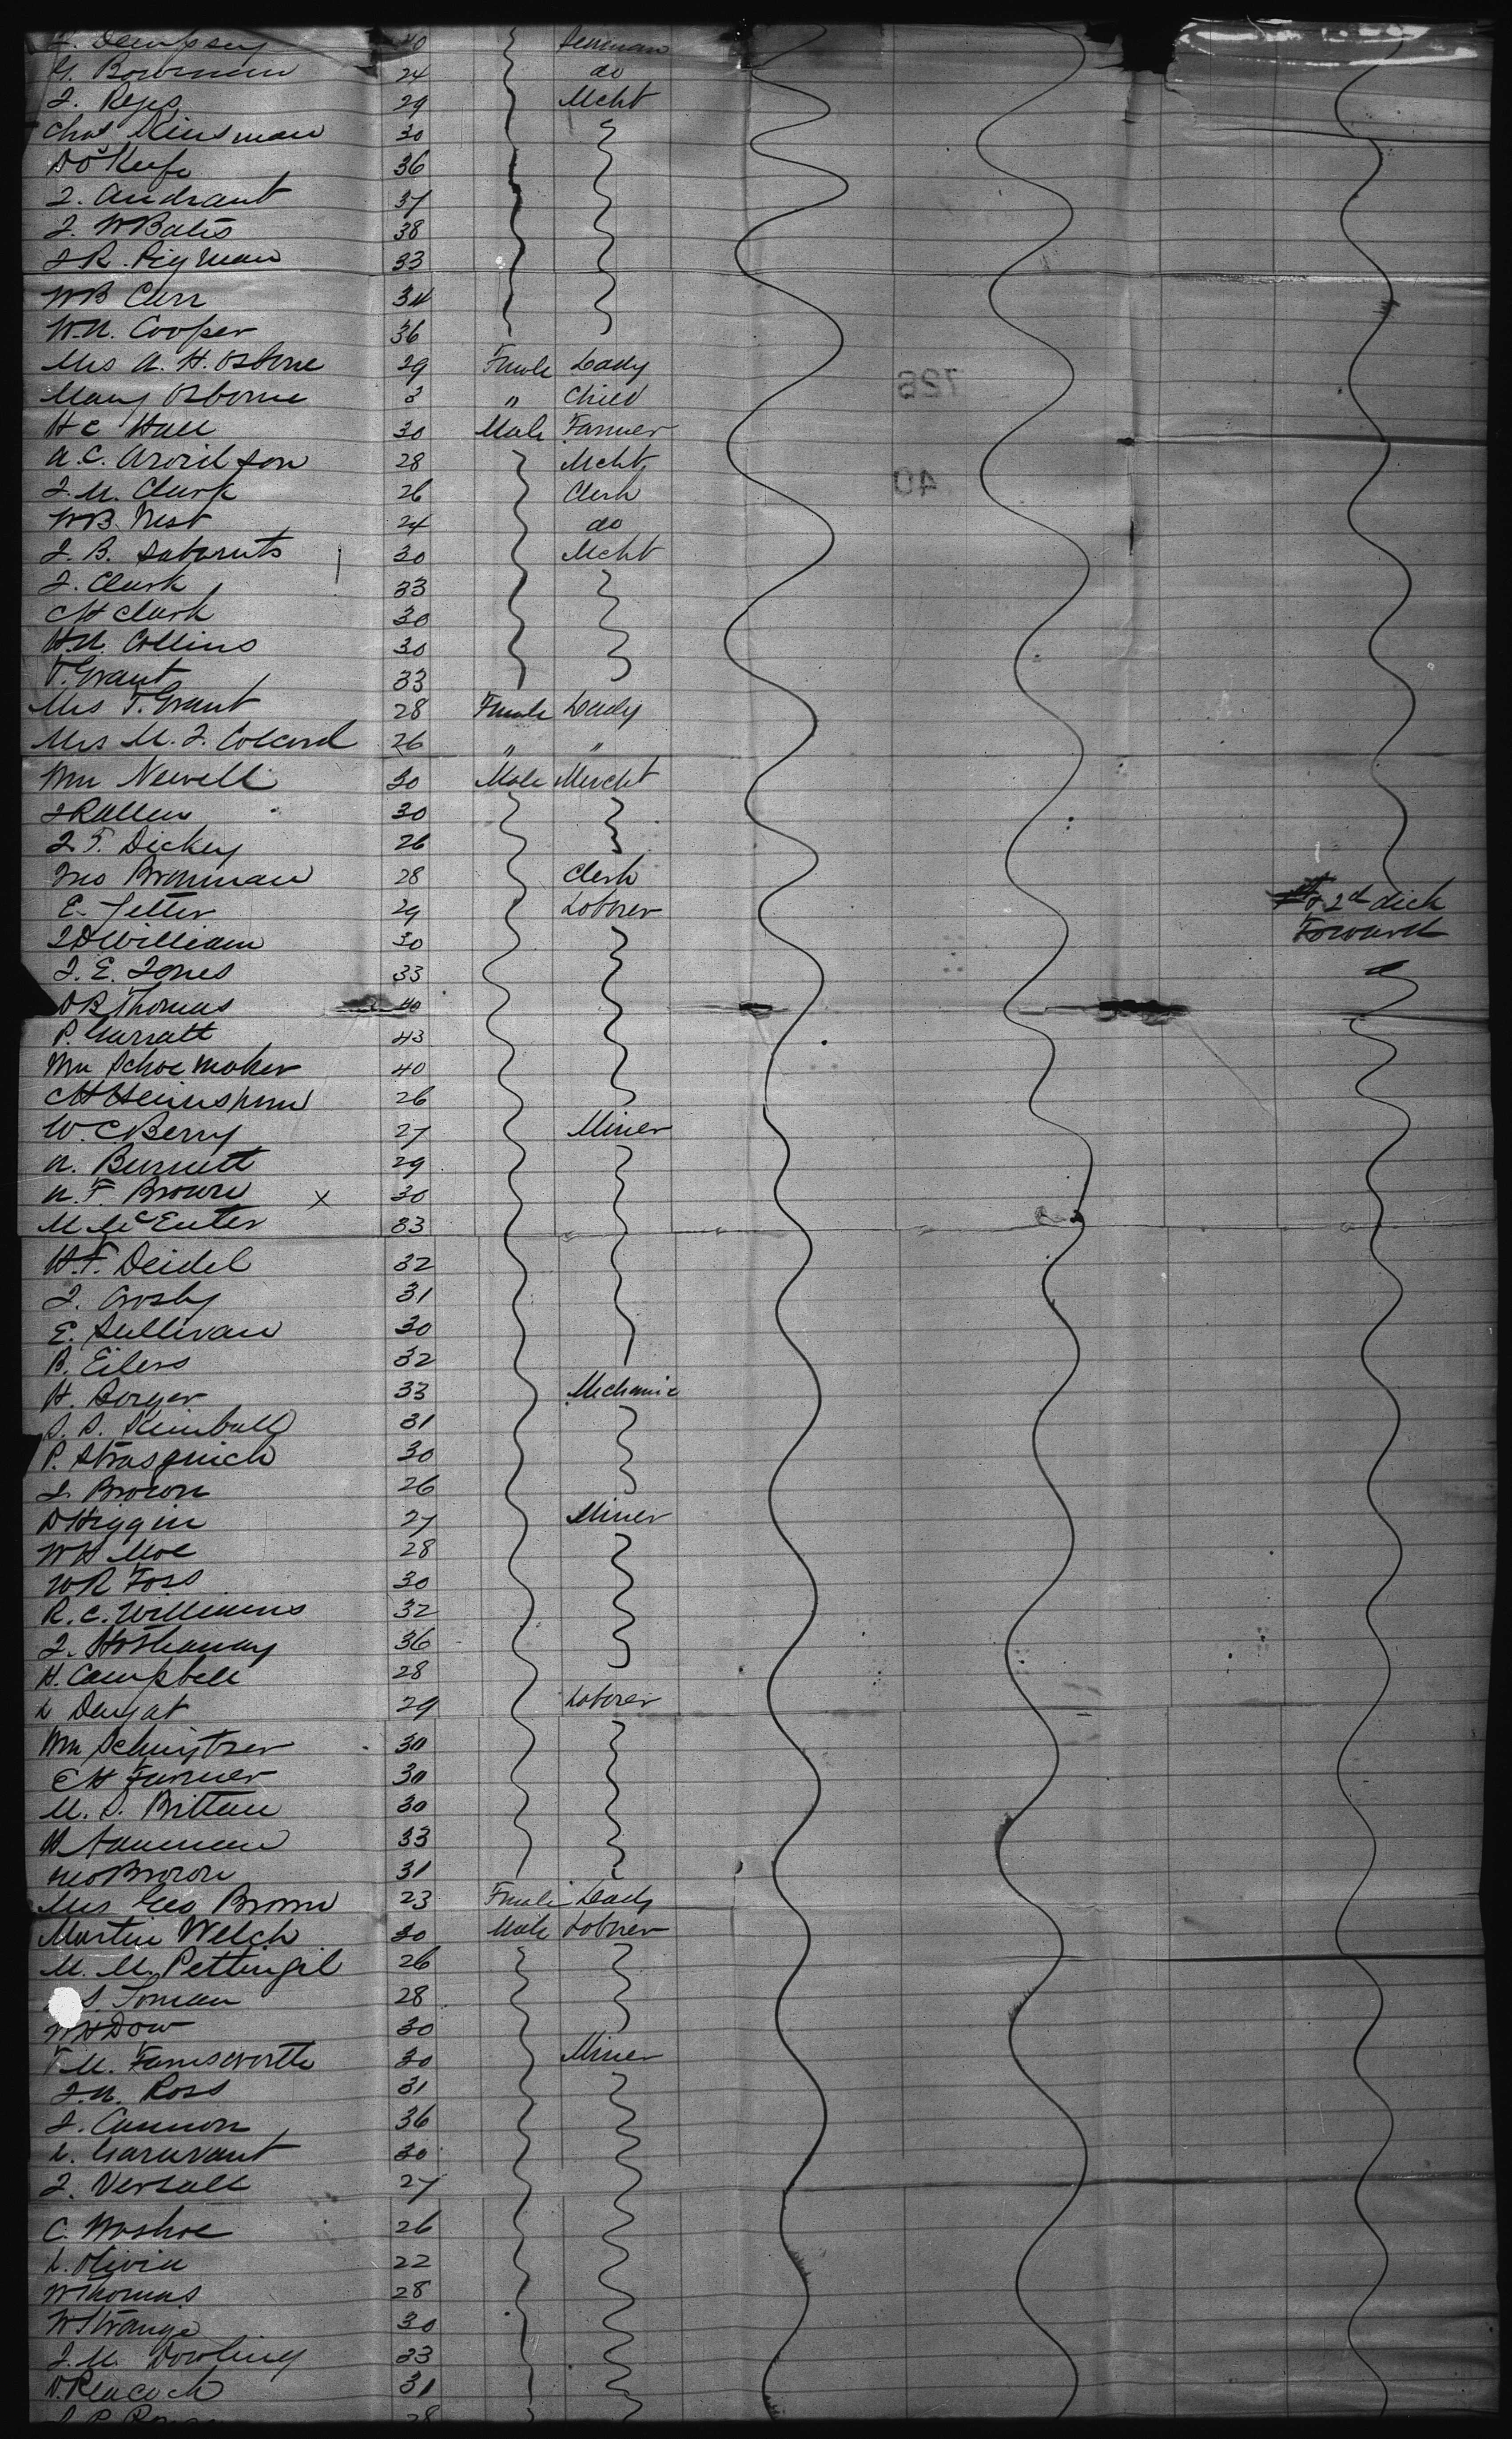 J. Dempsey 40 Seaman
G. Bowman 24 do
J. 29 Mcht
Chas Kinsman 30
D O'Keefe 36
J. Andrant 37
J. W Bates 38
J R. Pigman 33
W B Carr 34
W.N. Cooper 36
Mrs A. H. Osborne 29 Female Lady
Mary Osborne 3 " Child
H C Hall 30 Male Farmer
A. C. 28 Mcht
J. M. Clark 26 Clerk
W B. West 24 do
J. B. 30 Mcht
J. Clark 33
C H Clark 30
H.N. Collins 30
T. Grant 33
Mrs T. Grant 28 Female Lady
Mrs M. J. Colcord 26 " "
Wm Newell 30 Male Mercht
J R Allen 30
J. F. Dickey 26
Jno Brennan 28 Clerk
E. Jetter 29 Laborer
J D William 30
J. E. Jones 33
D B Thomas 40
P. Garratt 43
Wm Schoemaker 40
C H 26
W. C. Berry 27 Miner
A. Burnett 29
N. F. Brown x 30
M. McEnter 33
H. F. Deidel 32
J. Crosby 31
E. Sullivan 30
B. Eilers 32
H. Borger 33 Mechanic
S. S. Kimball 31
P. Strasquich 30
J. Brown 26
D Higgin 27 Miner
W H Moe 28
W R Foss 30
R. C. Williams 32
J. Hathaway 36
H. Campbell 28
L 29 Laborer
Wm 30
C H Farmer 30
M. S. Britten 30
H 33
Geo Brown 31
Mrs Geo Brown 23 Female Lady
Martin Welch 30 Male Laborer
M. M. Pettingil 26
S. 28
W H Dow 30
T M. Farnsworth 30 Miner
J. N. Ross 31
J. Cannon 36
L. 30
J. Versall 27
C. Woshoe 26
L. Olivia 22
W Thomas 28
W Strange 30
J. M. Dowling 33
D. Peacock 31
28
726
40
To 2d dick
Forward